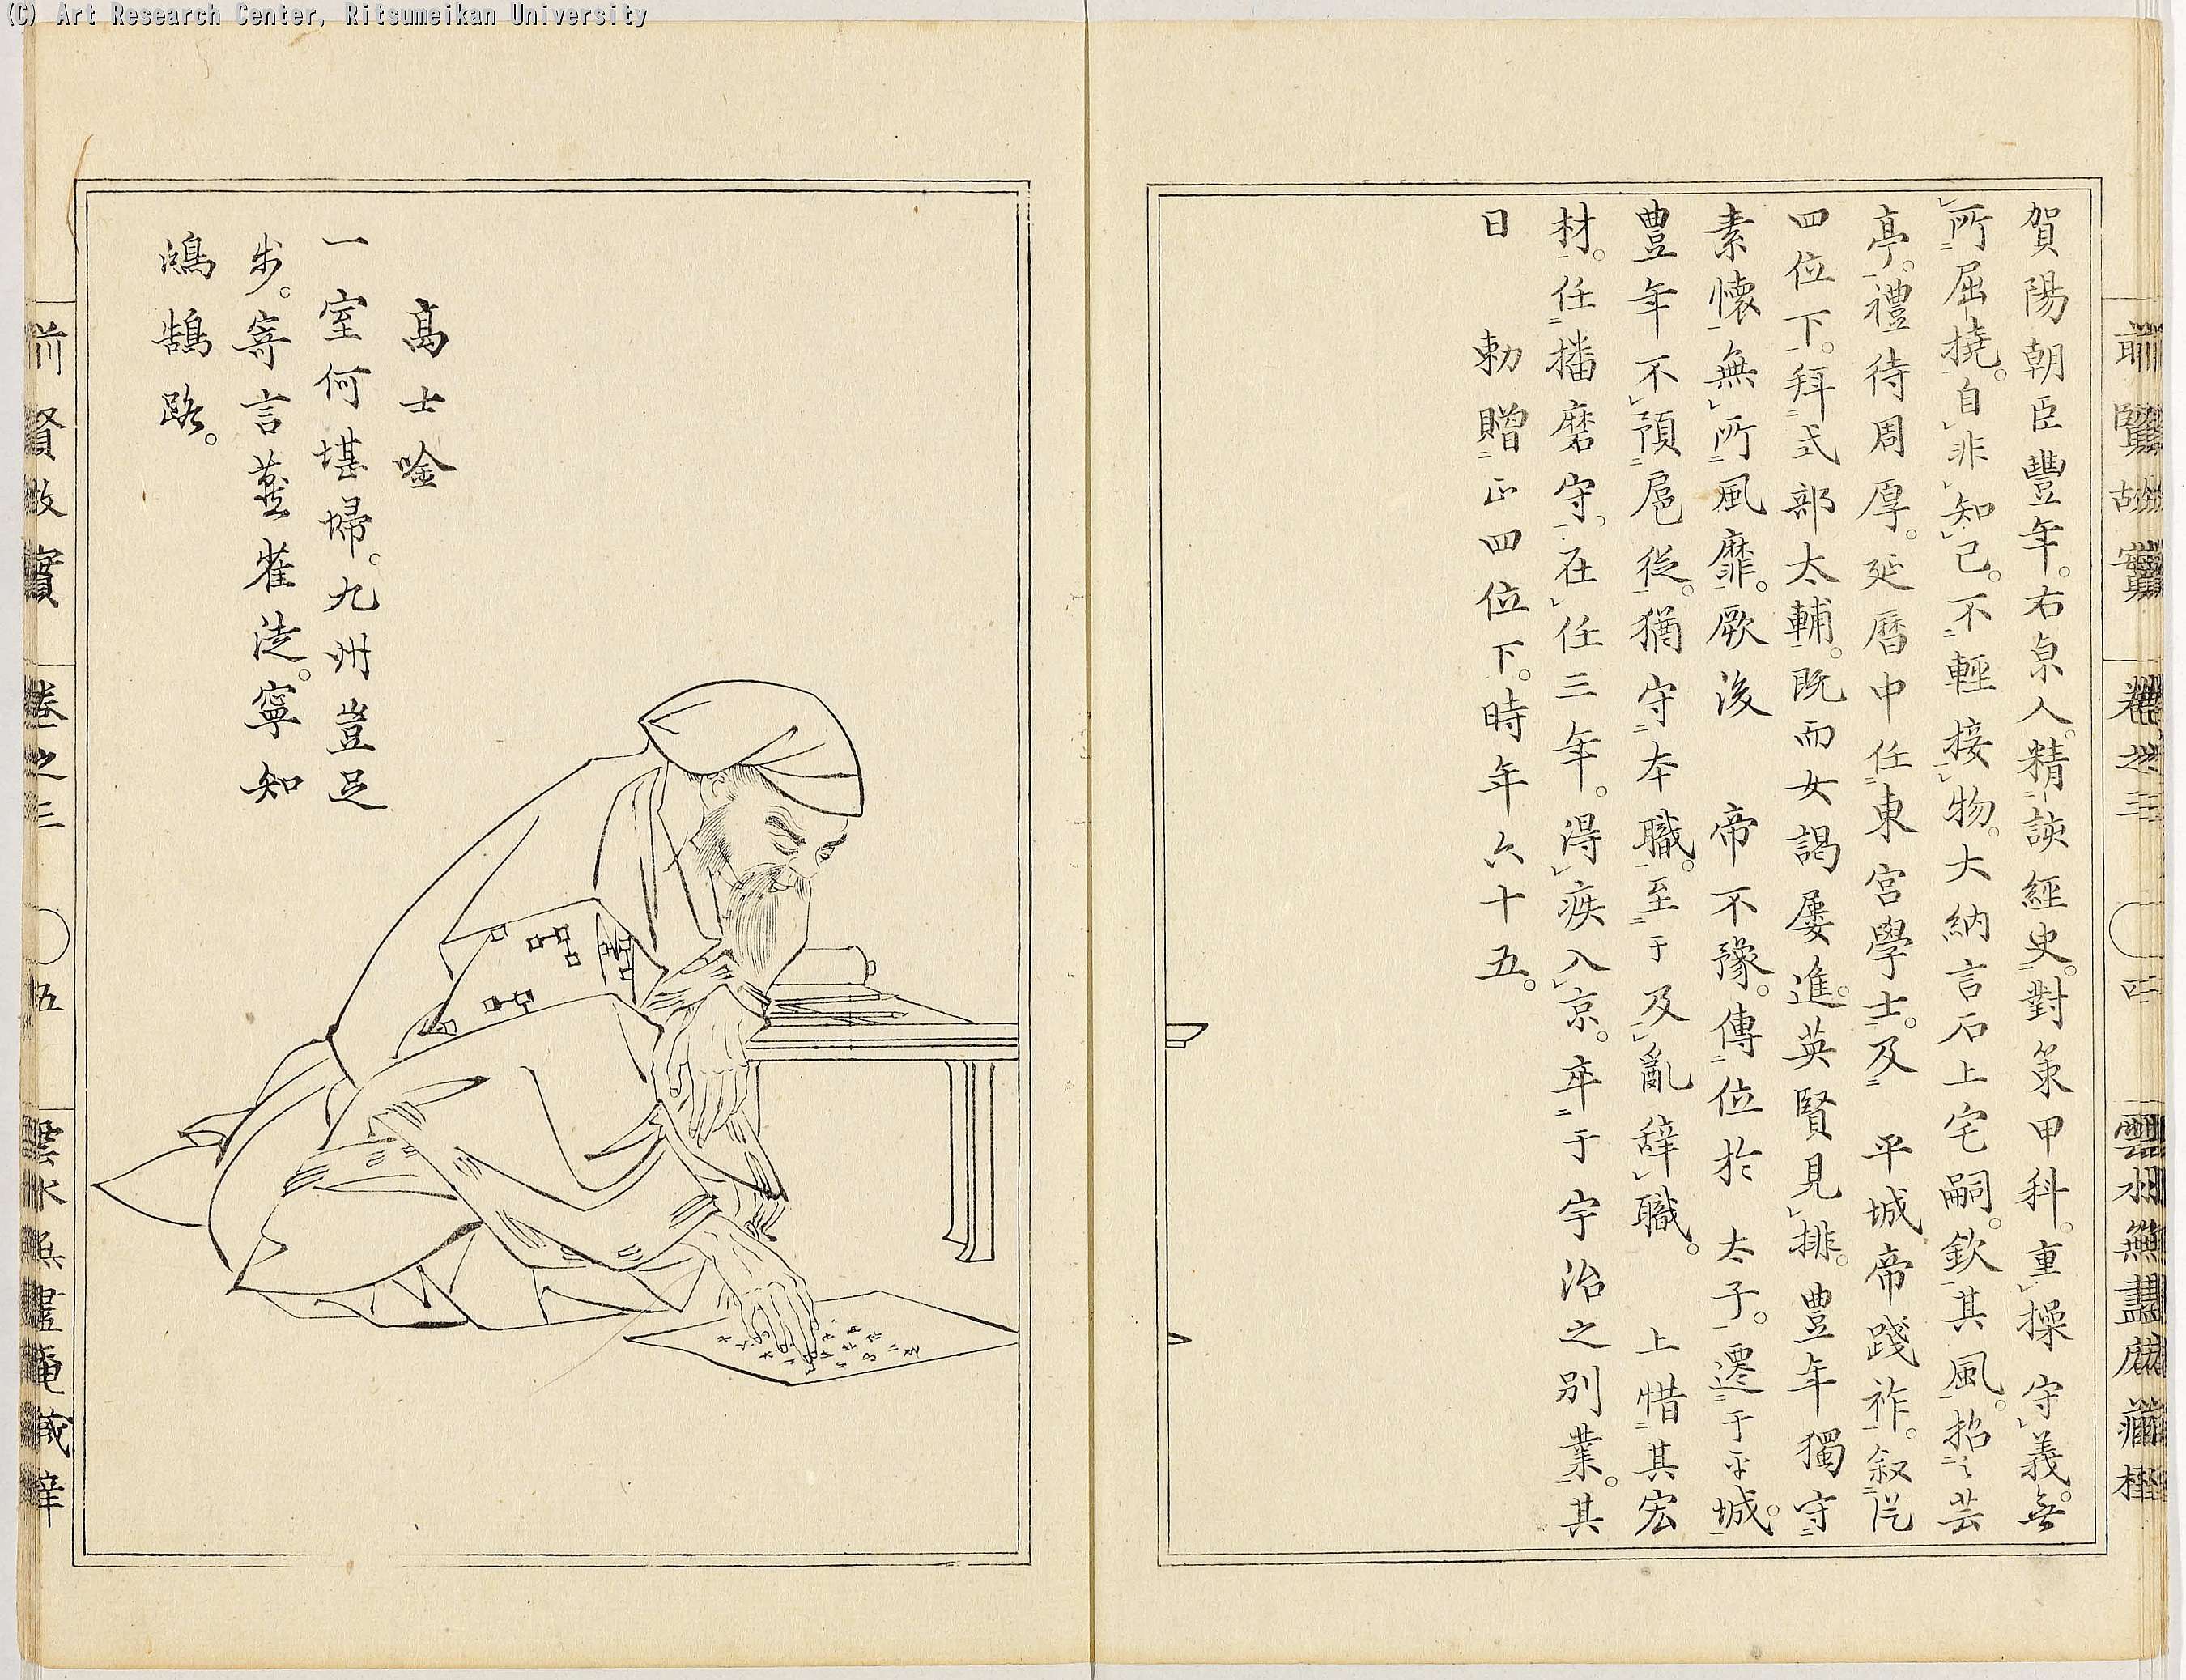 (C) Art Research Center, Ritsumeikan University
賀陽朝臣豐年。右京人。精詼經史。對策甲科。重操守義。無
所屈撓。自非知己。不輕接物。大納言石上宅嗣。欽其風。招之芸
亭。禮待周厚。延暦中任東宮學士。及　平城帝踐祚。叙従
四位下。拜式部太輔。既而女謁屢進。英賢見排。豊年獨守
素懐無所風靡。厥後　帝不豫。傳位於　太子。遷于平城。
豊年不預扈從。猶守本職。至于及亂辞職。　上惜其宏
材。任播磨守。在任三年。得疾入京。卒于宇治之別業。其
日　勅贈正四位下。時年六十五。
高士唫
一室何堪埽。九州豈足
步。寄言燕雀徒。寧知
鴻鵠路。
前賢故實　卷之三　五